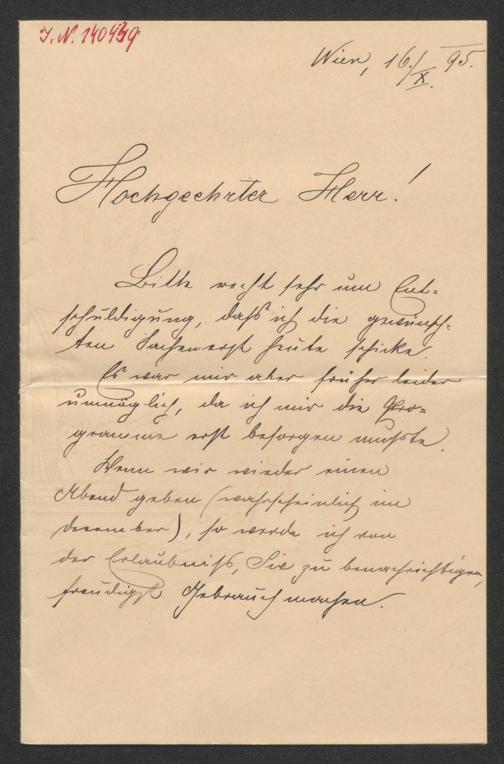 J. N. 140439
Wien, 16./X. 95.
Hochgeehrter Herr!
Bitte recht sehr um Ent-
schuldigung, daß ich die gewünsch-
ten Sachen erst heute schicke.
Es war mir aber früher leider
unmöglich, da ich mir die Pro-
gramme erst besorgen mußte.
Wenn wir wieder einen
Abend geben (wahrscheinlich im
December), so werde ich von
der Erlaubniß, Sie zu benachrichtigen,
freudigst Gebrauch machen.